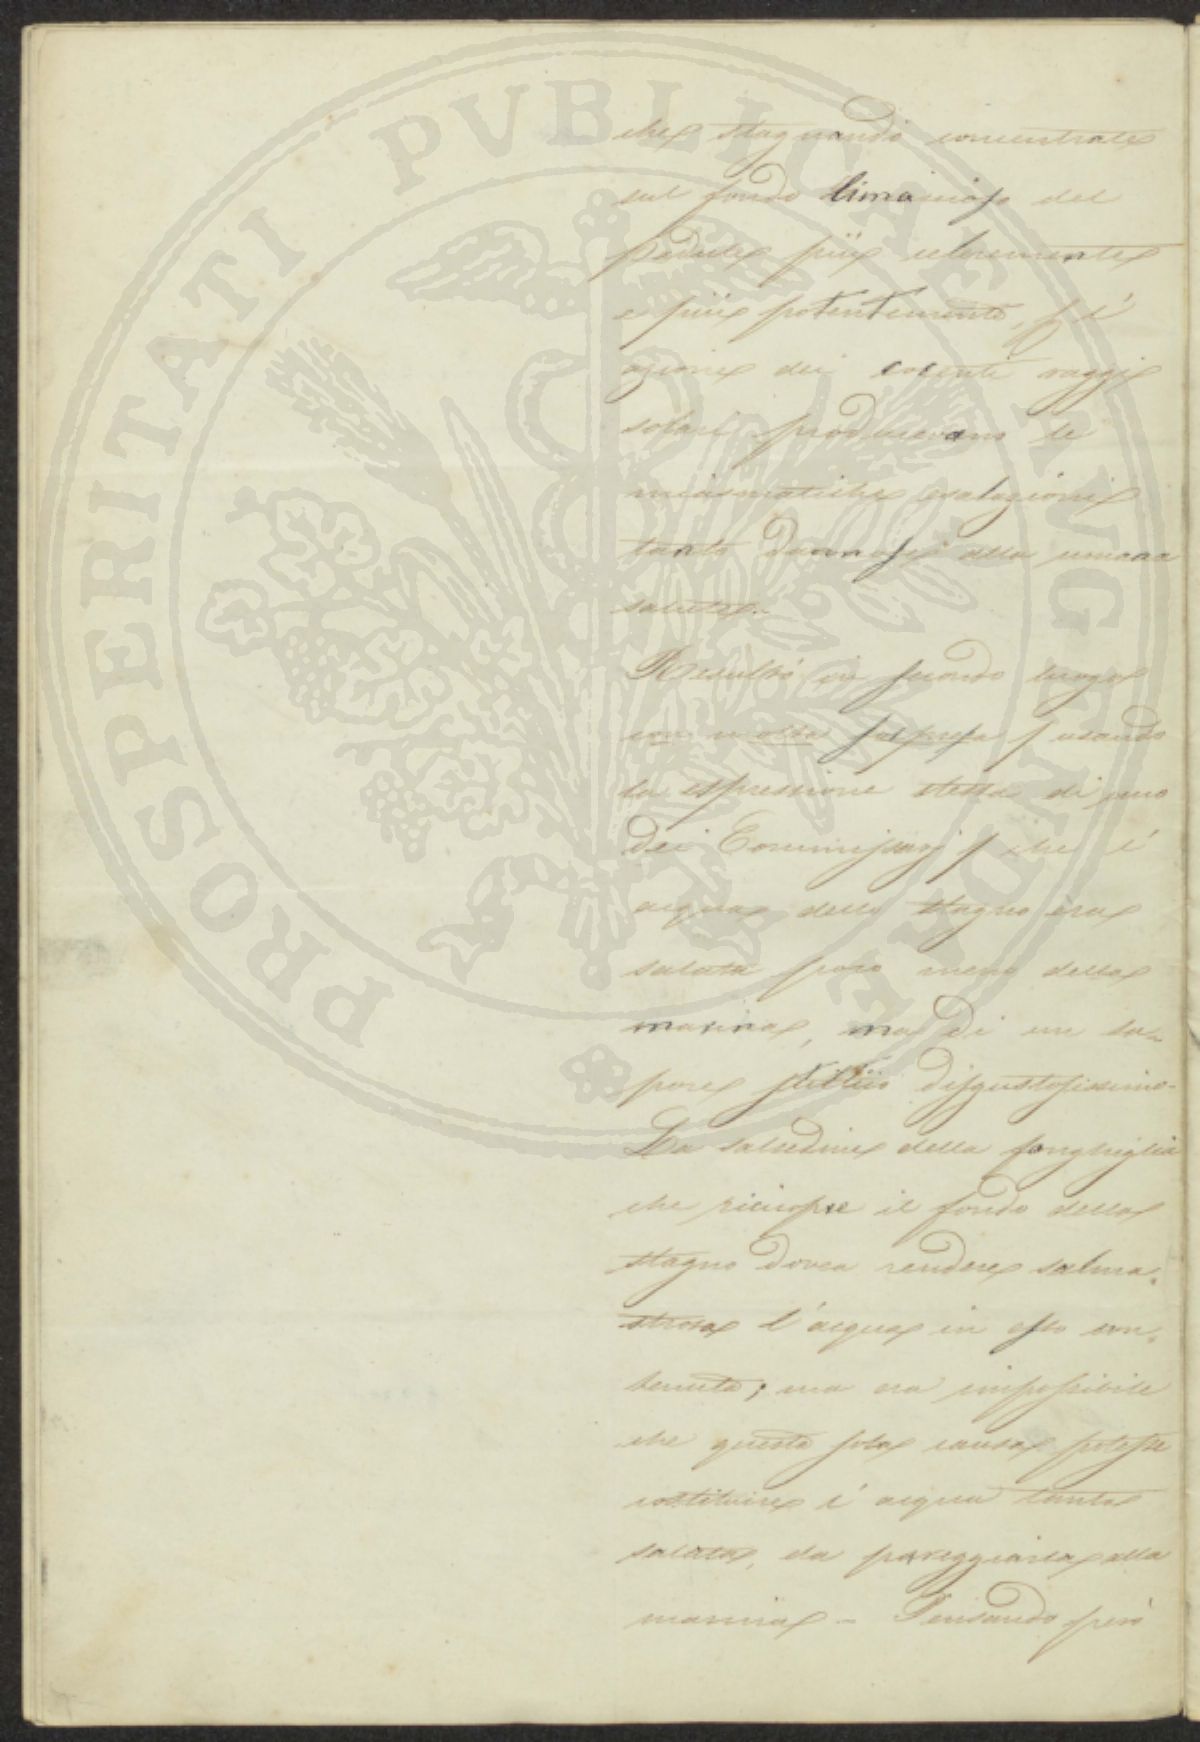 PROSPERITATI PVBLICAE AVGENDAE
che stagnando concentrate
sul fondo limaccioso del
padule più celeremente
e più potentemente, p l'
azione dei cocenti raggi
solari producevano le
miasmatiche esalazioni
tanto dannose alla umana
salute.
Resultò in secondo luogo
con molta sorpresa / usando
la espressione stessa di uno
dei Commissarj / che l'
acqua dello stagno era
salata poco meno della
marina, ma di un sa-
pore stitico disgustosissimo-
La salsedine della fanghiglia
che ricuopre il fondo dello
stagno dovea rendere salma-
strosa l'acqua in esso con-
tenuta; ma era impossibile
che questa sola causa potesse
costituire l'acqua tanto
salata, da pareggiarla alla
marina - Pensando però